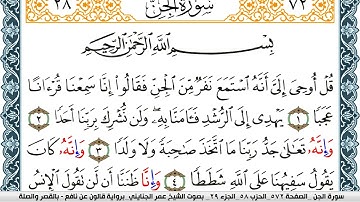 ٧٢ سُورَةُ الجِنِّ ٢٨
بِسْمِ اللَّهِ الرَّحْمَٰنِ الرَّحِيمِ
قُلْ أُوحِيَ إِلَيَّ أَنَّهُ اسْتَمَعَ نَفَرٌ مِّنَ الْجِنِّ فَقَالُوا إِنَّا سَمِعْنَا قُرْءَانًا
عَجَبًا ١ يَهْدِي إِلَى الرُّشْدِ فَـَٔامَنَّا بِهِۦ وَلَن نُّشْرِكَ بِرَبِّنَا أَحَدًا ٢
وَإِنَّهُۥ تَعَالَىٰ جَدُّ رَبِّنَا مَا اتَّخَذَ صَٰحِبَةً وَلَا وَلَدًا ٣ وَإِنَّهُۥ كَانَ
يَقُولُ سَفِيهُنَا عَلَى اللَّهِ شَطَطًا ٤ وَإِنَّا ظَنَنَّا أَن لَّن تَقُولَ الْإِنسُ
سورة الجن . الصفحة ٥٧٢ . الحزب ٥٨ . الجزء ٢٩ . بصوت الشيخ عمر الجنايني . برواية قالون عن نافع - بالقصر والصلة